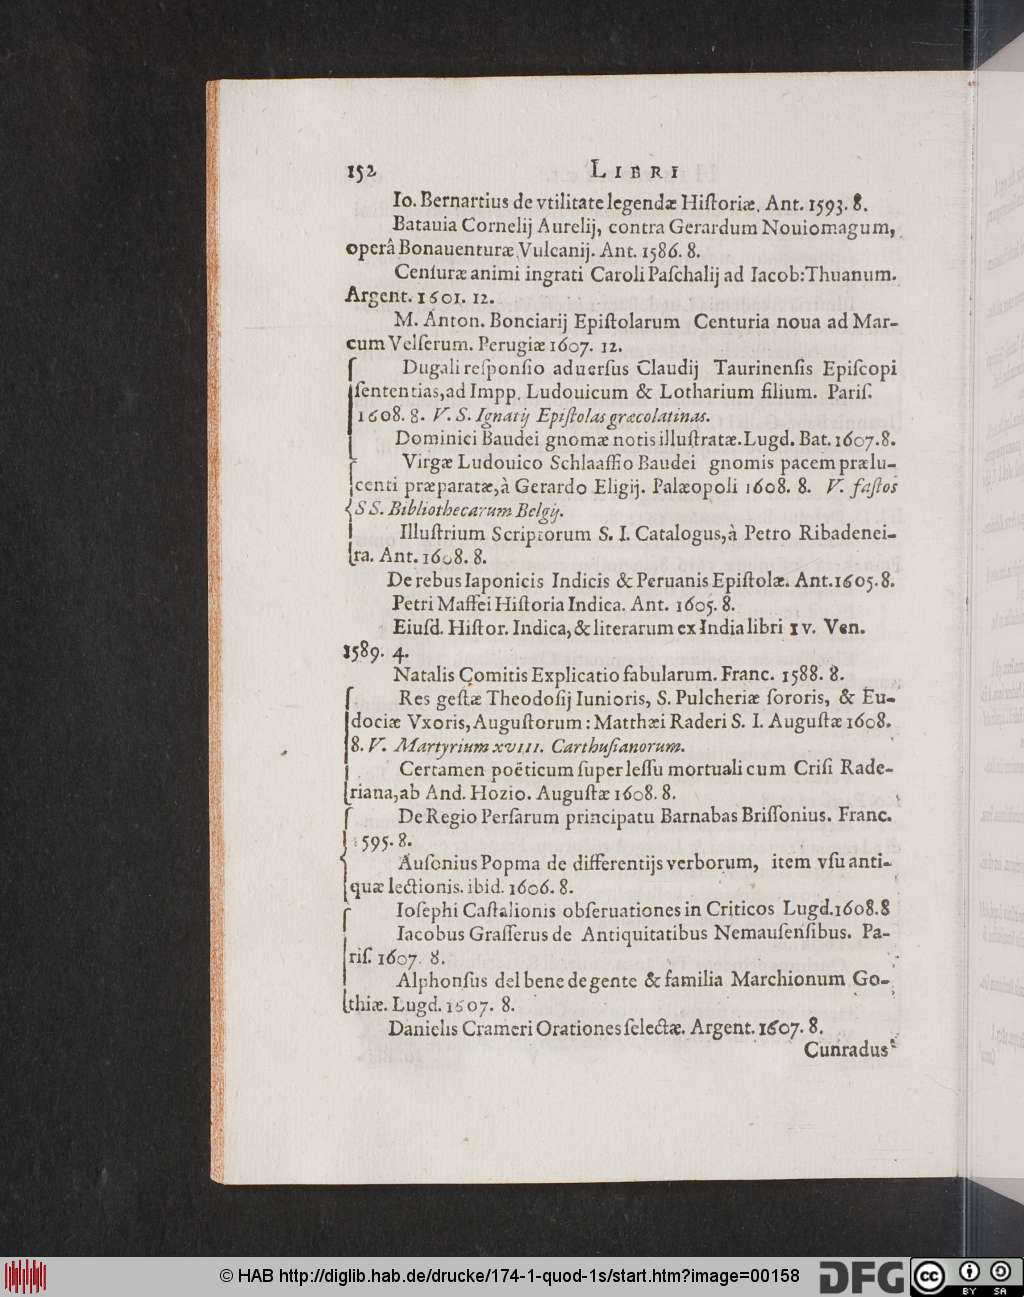 152 LIBRI
Io. Bernartius de vtilitate legendæ Hiſtoriæ. Ant. 1593. 8.
Batauia Cornelij Aurelij, contra Gerardum Nouiomagum,
operâ Bonauenturæ Vulcanij. Ant. 1586. 8.
Cenſuræ animi ingrati Caroli Paſchalij ad Iacob: Thuanum.
Argent. 1601. 12.
M. Anton. Bonciarij Epiſtolarum Centuria noua ad Mar-
cum Velſerum. Perugiæ 1607. 12.
Dugali reſponſio aduerſus Claudij Taurinenſis Epiſcopi
ſententias, ad Impp. Ludouicum & Lotharium filium. Pariſ.
1608. 8. V. S. Ignatij Epiſtolas græcolatinas.
Dominici Baudei gnomæ notis illuſtratæ. Lugd. Bat. 1607. 8.
Virgæ Ludouico Schlaaffio Baudei gnomis pacem prælu-
centi præparatæ, à Gerardo Eligij. Palæopoli 1608. 8. V. faſtos
SS. Bibliothecarum Belgij.
Illuſtrium Scriptorum S. I. Catalogus, à Petro Ribadenei-
ra. Ant. 1608. 8.
De rebus Iaponicis Indicis & Peruanis Epiſtolæ. Ant. 1605. 8.
Petri Maffei Hiſtoria Indica. Ant. 1605. 8.
Eiuſd. Hiſtor. Indica, & literarum ex India libri IV. Ven.
1589. 4.
Natalis Comitis Explicatio fabularum. Franc. 1588. 8.
Res geſtæ Theodoſij Iunioris, S. Pulcheriæ ſororis, & Eu-
dociæ Vxoris, Auguſtorum: Matthæi Raderi S. I. Auguſtæ 1608.
8. V. Martyrium XVIII. Carthuſianorum.
Certamen poëticum ſuper leſſu mortuali cum Criſi Rade-
riana, ab And. Hozio. Auguſtæ 1608. 8.
De Regio Perſarum principatu Barnabas Briſſonius. Franc.
1595. 8.
Auſonius Popma de differentijs verborum, item vſu anti-
quæ lectionis. ibid. 1606. 8.
Ioſephi Caſtalionis obſeruationes in Criticos Lugd. 1608. 8
Iacobus Graſſerus de Antiquitatibus Nemauſenſibus. Pa-
riſ. 1607. 8.
Alphonſus del bene de gente & familia Marchionum Go-
thiæ. Lugd. 1607. 8.
Danielis Crameri Orationes ſelectæ. Argent. 1607. 8.
Cunradus
© HAB http://diglib.hab.de/drucke/174-1-quod-1s/start.htm?image=00158
DFG
cc BY SA